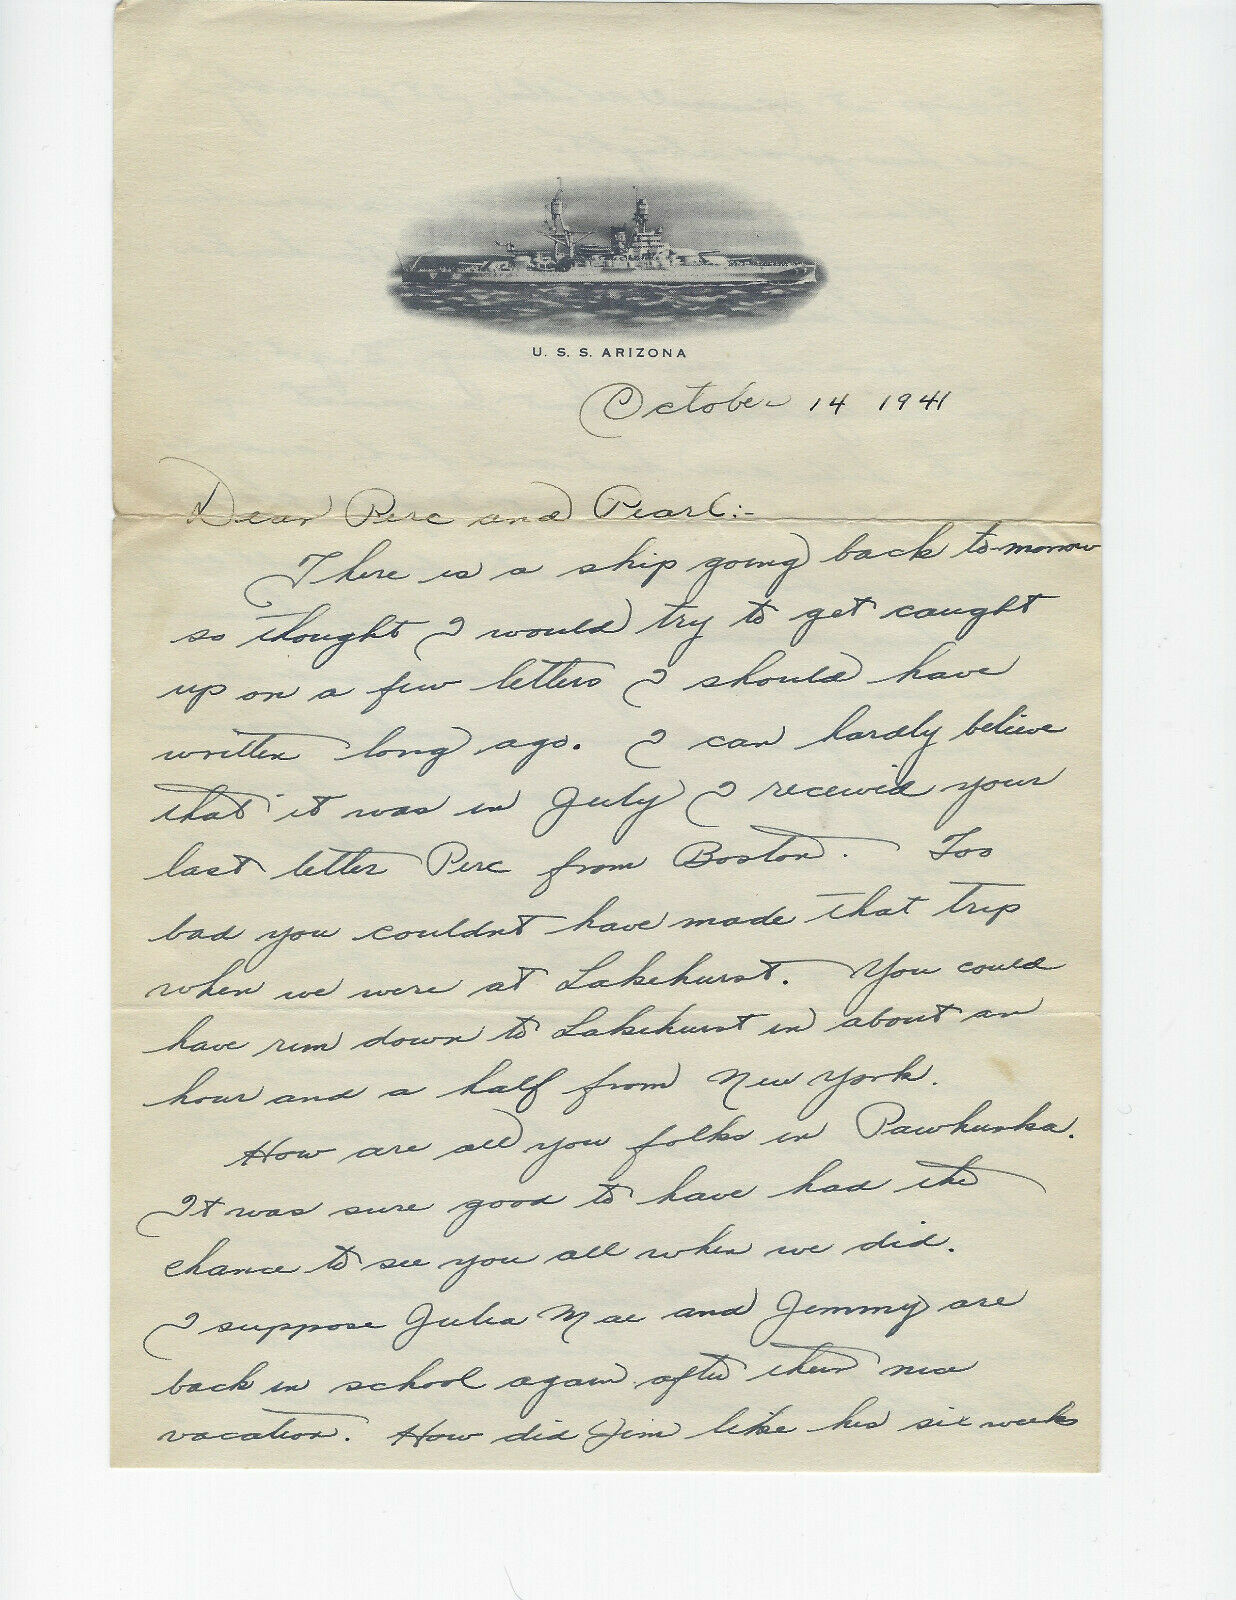 U. S. S. ARIZONA
October 14 1941
Dear Perc and Pearl:-
There is a ship going back to-morrow
so thought I would try to get caught
up on a few letters I should have
written long ago. I can hardly believe
that it was in July I received your
last letter Perc from Boston. Too
bad you couldnt have made that trip
when we were at Lakehurst. You could
have run down to Lakehurst in about an
hour and a half from New York.
How are all you folks in Pawhuska.
It was sure good to have had the
chance to see you all when we did.
I suppose Julia Mae and Jimmy are
back in school again after their nice
vacation. How did Jim like his six weeks